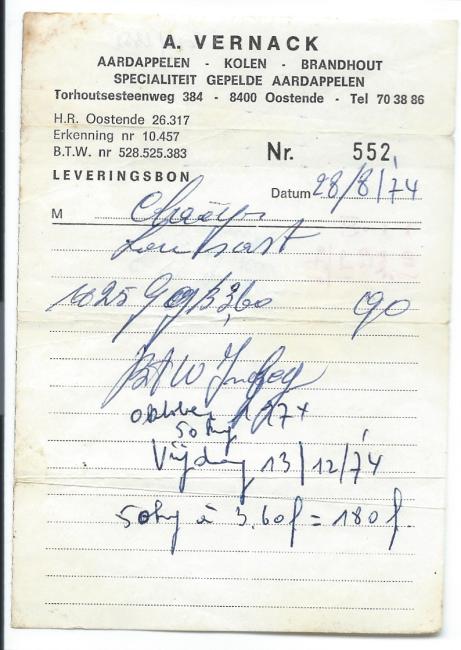 A. VERNACK
AARDAPPELEN - KOLEN - BRANDHOUT
SPECIALITEIT GEPELDE AARDAPPELEN
Torhoutsesteenweg 384 - 8400 Oostende - Tel 70 38 86
H.R. Oostende 26.317
Erkenning nr 10.457
B.T.W. nr 528.525.383
Nr. 552
LEVERINGSBON
Datum 28/8/74
M
25 3,60 90
BTW
74
50 kg
Vrijdag 13/12/74
50 kg à 3,60 f = 180 f.